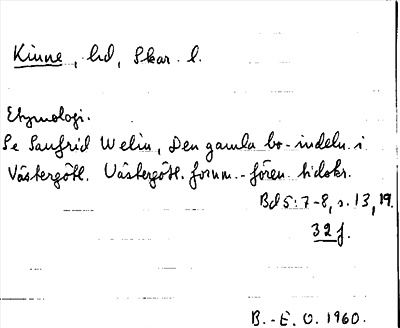 Kinne, hd, Skar. l.
Etymologi.
Se Sanfrid Welin, Den gamla bo-indeln. i
Västergötl. Västergötl. fornm.-fören. tidskr.
Bd 5: 7-8, s. 13, 19.
32 f.
B.-E. O. 1960.